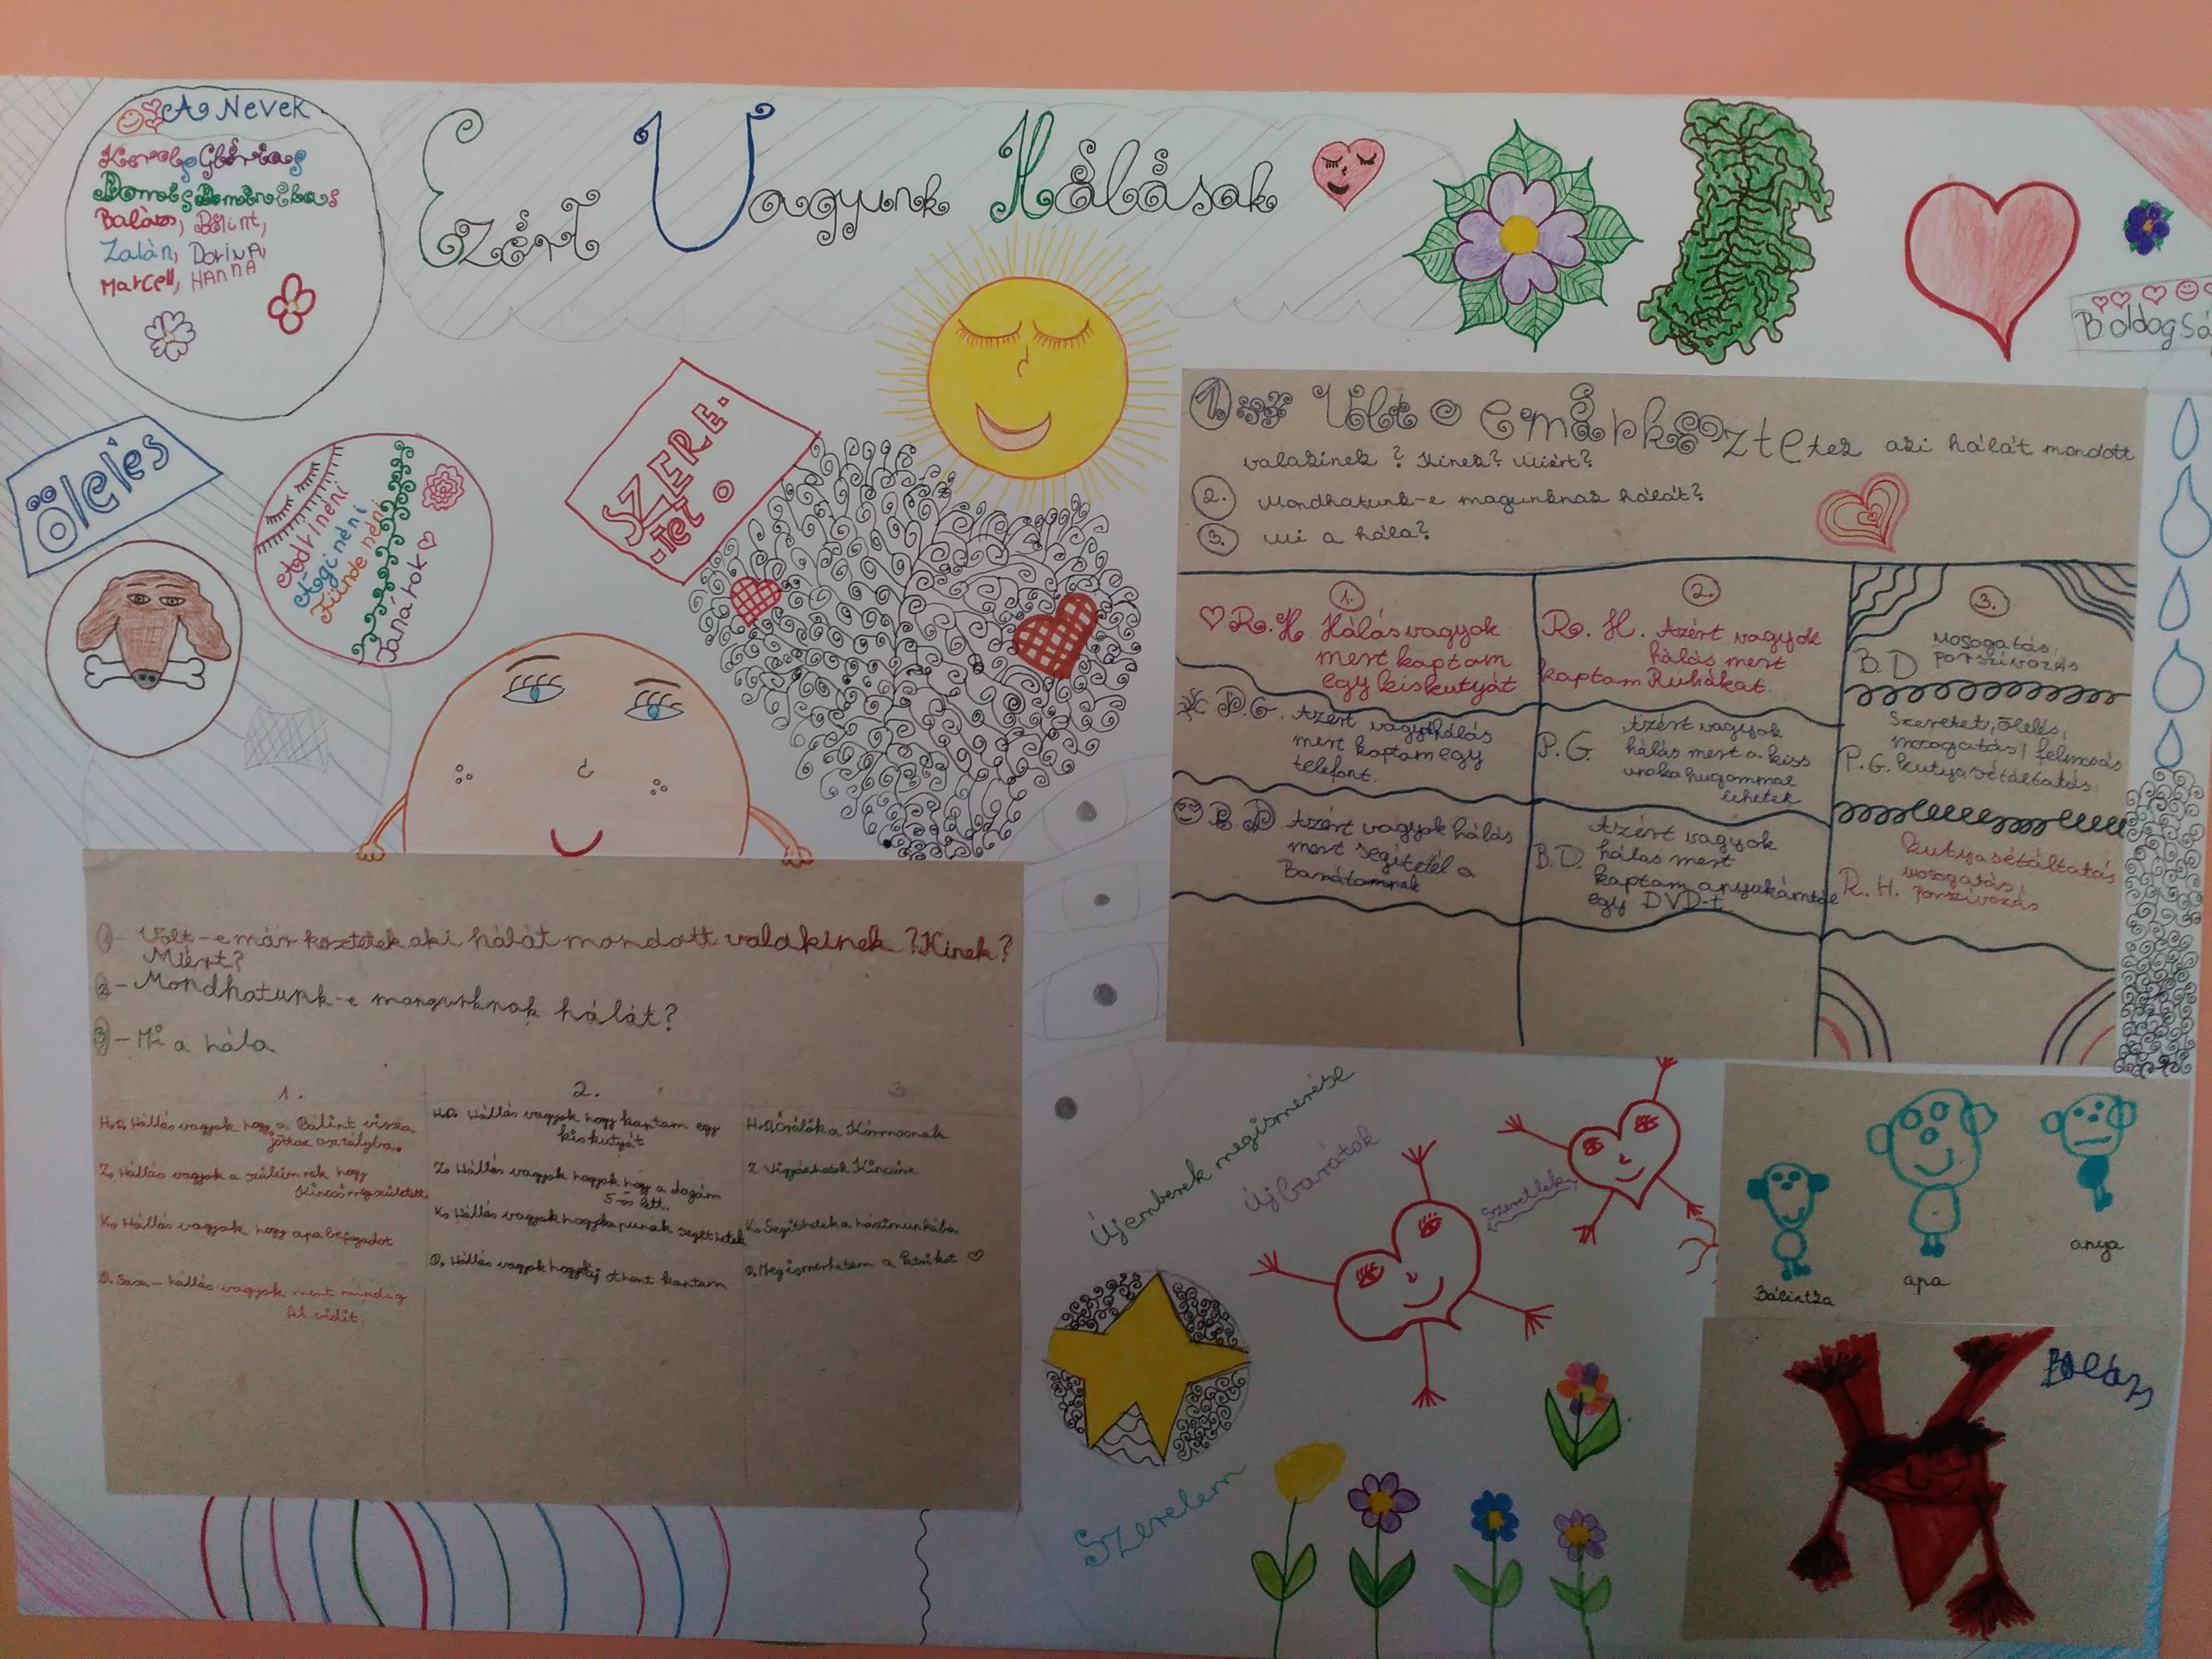 A Nevek
Balázs, Bálint,
Zalán, Dorina,
Marcell, HANNA
Ezért Vagyunk Hálásak
Boldogsá
ölelés
Ági néni
Tünde néni
Tanárok
SZERE-
-tet
1. Volt e már köztetek aki hálát mondott
valakinek? Kinek? Miért?
2. Mondhatunk-e magunknak hálát?
3. Mi a hála?
1.
R.H. Hálás vagyok
mert kaptam
egy kiskutyát
D.G. Azért vagyok hálás
mert kaptam egy
telefont.
B D Azért vagyok hálás
mert segítetél a
Barátomnak
2.
R. H. Azért vagyok
hálás mert
kaptam Ruhákat.
P.G. Azért vagyok
hálás mert a kiss
unoka hugommal
lehetek
B.D. Azért vagyok
hálás mert
kaptam anyukámtól
egy DVD-t
3.
B. D mosogatás,
porszívozás
Szeretet, ölelés,
mosogatás, felmosás
P.G. kutyasétáltatás
kutyasétáltatás
R. H. mosogatás,
porszívozás
1 - Volt-e már köztetek aki hálát mondott valakinek? Kinek?
Miért?
2 - Mondhatunk-e mangunknak hálát?
3 - Mi a hála
1.
H.D. Hállás vagyok hogy a Bálint vissza
jött az osztályba.
Z. Hállás vagyok a szüleimnek hogy
Kincső megszületett
K. Hállás vagyok hogy apa befogadot
D. Sasa - hállás vagyok mert mindig
fel vidit.
2.
H.D. Hállás vagyok hogy kaptam egy
kiskutyát
Z. Hállás vagyok hogy a dogám
5-ös lett.
K. Hállás vagyok hogy apunak segithetek
D. Hállás vagyok hogy új othont kaptam
3
H.D. Örülök a Kormosnak
Z Vigyázhatok Kincsőre
K. Segithetek a házimunkába
D. Megismerhetem a Patrikot
Új emberek megismerése
Új barátok
Szeretlek
Szerelem
Bálintka
apa
anya
Balázs